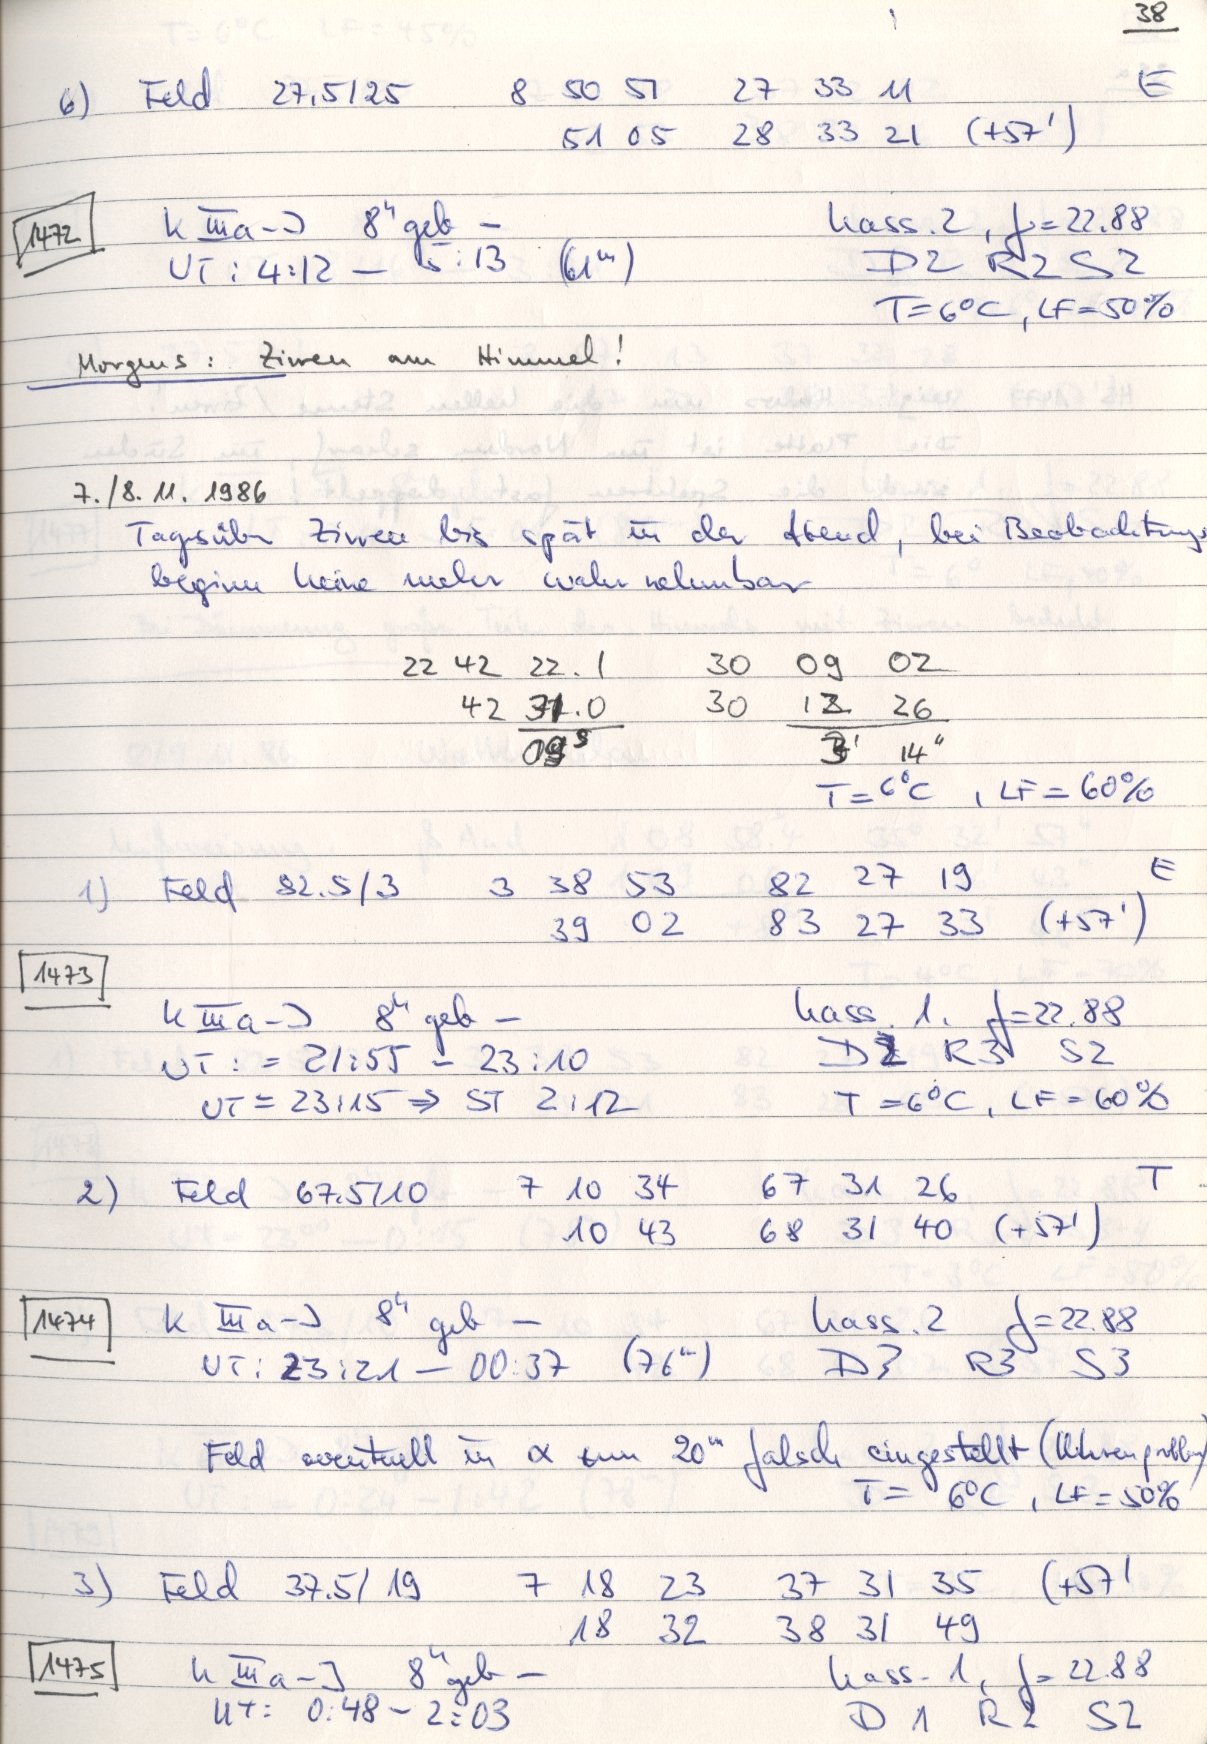 38
6) Feld 27,5/25 8 50 51 27 33 11 E
51 05 28 33 21 (+57')
1472
K IIIa-J 8h geb - Kass. 2, f=22.88
UT: 4:12 - 5:13 (61m) D2 R2 S2
T=6°C, LF=50%
Morgens: Zirren am Himmel!
7./8. 11. 1986
Tagsüber Zirren bis spät in der Abend, bei Beobachtungs
beginn keine mehr wahrnehmbar
22 42 22.1 30 09 02
42 31.0 30 12 26
09s 3' 14"
T=6°C, LF=60%
1) Feld 82.5/3 3 38 53 82 27 19 E
39 02 83 27 33 (+57')
1473
K IIIa-J 8h geb - Kass. 1, f=22.88
UT: = 21:55 - 23:10 D2 R3 S2
UT = 23:15 ⇒ ST 2:12 T=6°C, LF=60%
2) Feld 67.5/10 7 10 34 67 31 26 T
10 43 68 31 40 (+57')
1474
K IIIa-J 8h geb - Kass. 2 f=22.88
UT: 23:21 - 00:37 (76m) D3 R3 S3
Feld eventuell in α um 20m falsch eingestellt (Uhrenproblem)
T= 6°C, LF=50%
3) Feld 37.5/19 7 18 23 37 31 35 (+57'
18 32 38 31 49
1475
K IIIa-J 8h geb - Kass. 1, f=22.88
UT: 0:48 - 2:03 D1 R2 S2